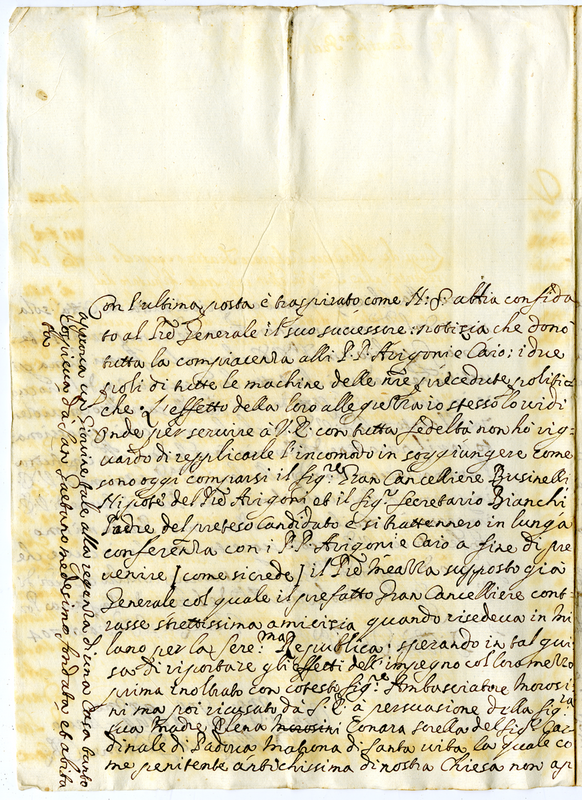 Con l'ultima posta è traspirato come N: S: abbia confida
to al Pre Generale il suo successore: notizia che donò
tutta la compiacenza alli P.P. Arigoni e Caio: i due
poli di tutte le machine delle nre precedute politi
che. L'effetto della loro allegrezza io stesso lo vidi
Onde per servire a V. E: con tutta fedeltà non hò rig
uardo di repplicarle l'incomodo in soggiungere come
sono oggi comparsi il Sigre Gran Cancelliere Businelli
Nipote del Pre Arigoni et il Sigr Secretario Bianchi
Padre del preteso Candidato e si trattennero in lunga
conferenza con i P.P. Arigoni e Caio a fine di pre
venire [come si crede] il Pre supposto già
Generale col quale il prefatto Gran Cancelliere cont
rasse strettissima amicizia quando risedeva in Mi
lano per la Sere:ma Republica: sperando in tal gui
sa di riportare gli effetti dell'impegno col loro mezzo
prima inoltrato con cotesto Sigre Ambasciatore Morosi
ni ma poi ricusato da S: E: a persuasione della Sigra
sua Madre Elena Morosini Cornara sorella del Sigr Car
dinale di Padova Matrona di santa vita la quale co
me penitente antichissima di nostra Chiesa non ap
aprova un Giovine tale alla reggenza di una Casa tanto
cospicua da San Gaetano medesimo fondata et abita
ta